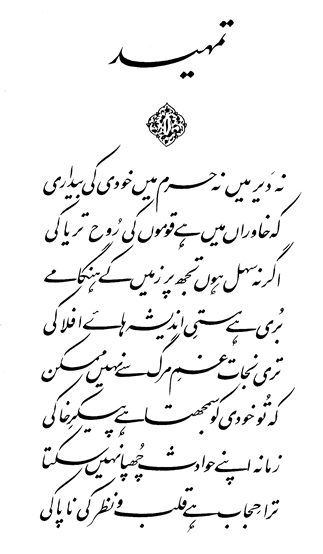 تمہید
نہ دَیر میں نہ حرم میں خودی کی بیداری
کہ خاوراں میں ہے قوموں کی رُوح تریاکی
اگر نہ سہل ہوں تجھ پر زمیں کے ہنگامے
بُری ہے مستیِ اندیشہ ہائے افلاکی
تری نجات غمِ مرگ سے نہیں ممکن
کہ تُو خودی کو سمجھتا ہے پیکرِ خاکی
زمانہ اپنے حوادث چُھپا نہیں سکتا
ترا حجاب ہے قلب و نظر کی ناپاکی